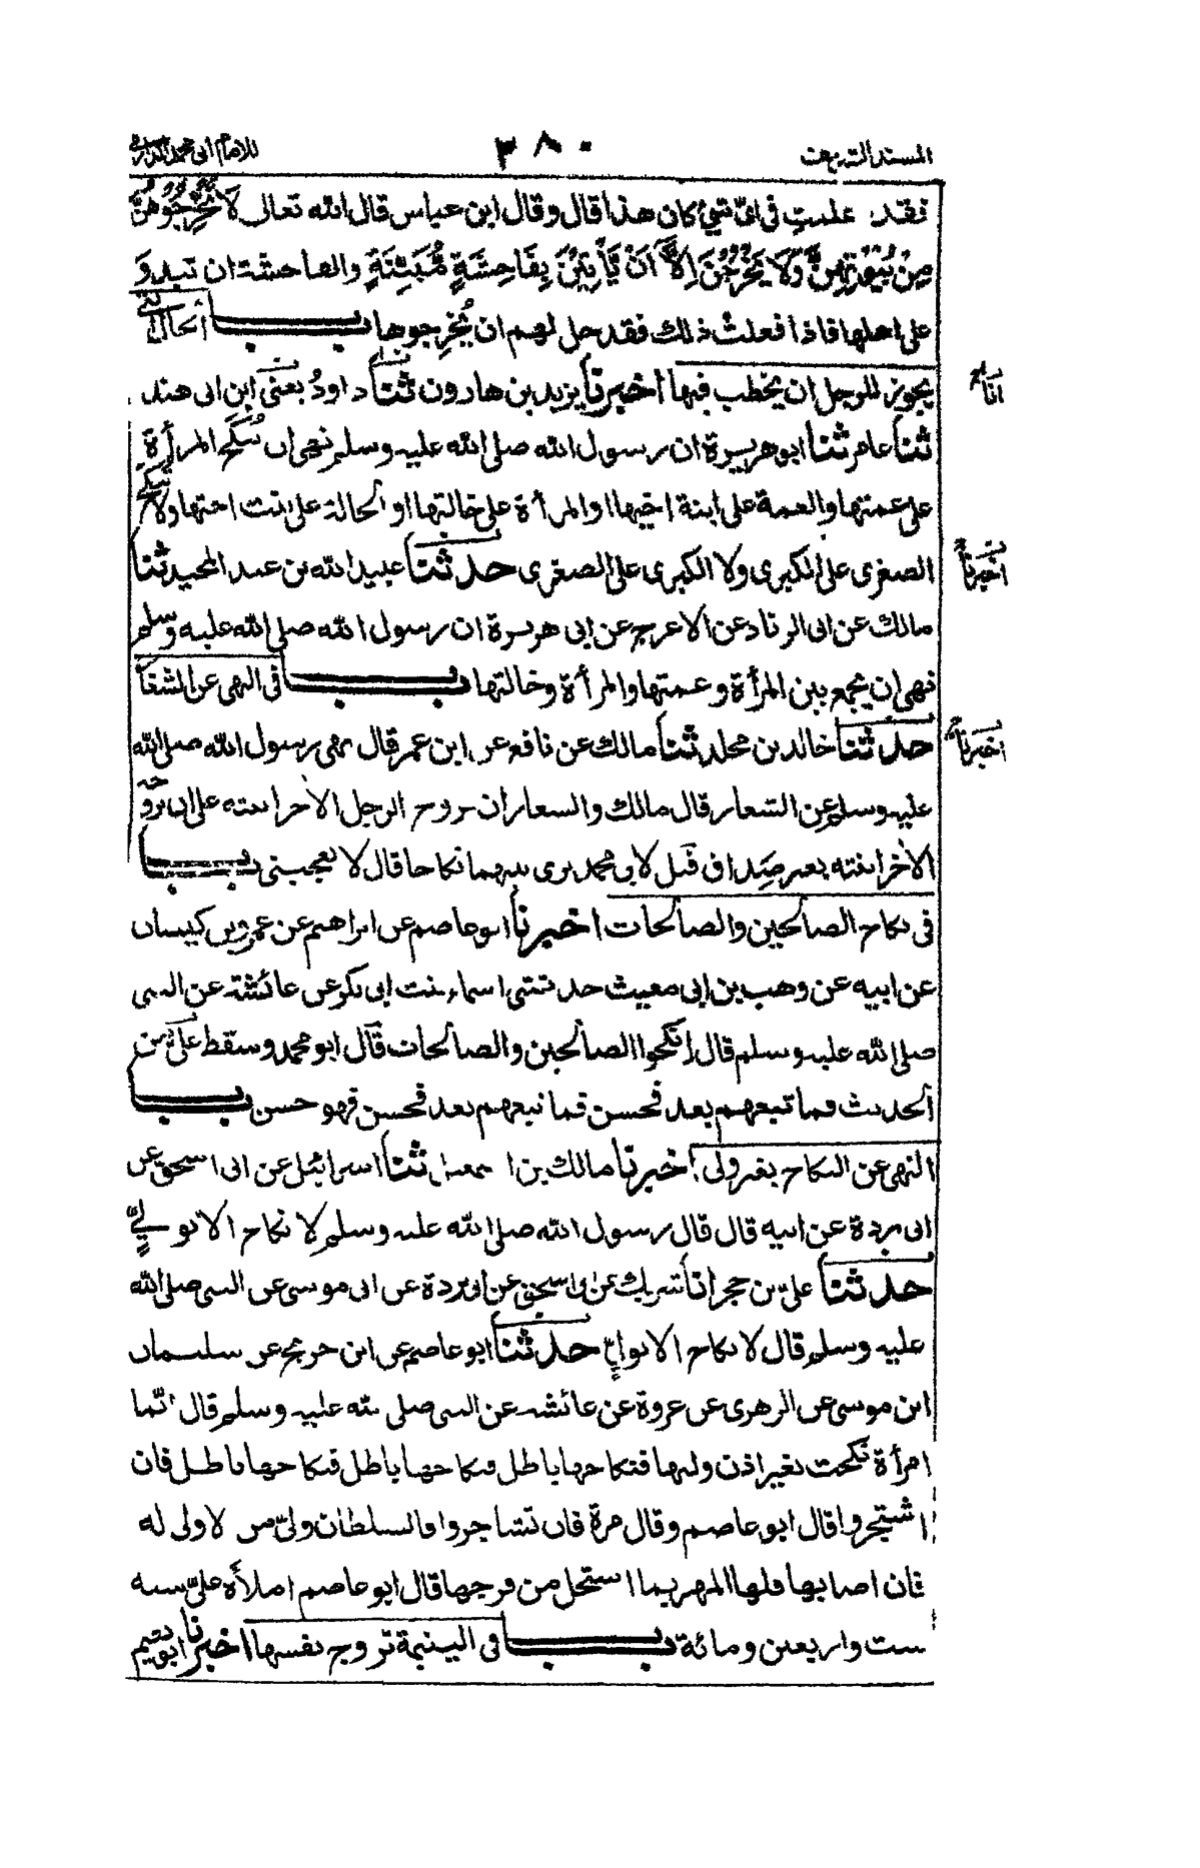 المسند الشريف ٣٨٠ للامام ابى محمد الدارمى
فقد علمت فى اىّ شئ كان هذا قال وقال ابن عباس قال الله تعالى لَا تُخْرِجُوْهُنَّ
مِنْ بُيُوْتِهِنَّ وَلَا يَخْرُجْنَ اِلَّا اَنْ يَّأْتِيْنَ بِفَاحِشَةٍ مُّبَيِّنَةٍ والفاحشة ان تبذو
على اهلها فاذا فعلت ذلك فقد حل لهم ان يُخرِجوها بــــاب الحال التى
يجوز للرجل ان يخطب فيها اخبرنا يزيد بن هارون ثنا داود يعنى ابن ابى هند
انا
ثنا عامر ثنا ابو هريرة ان رسول الله صلى الله عليه وسلم نهى ان تُنكَح المرأة
على عمتها والعمة على ابنة اخيها او المرأة على خالتها او الخالة على بنت اختها ولا تنكح
الصغرى على الكبرى ولا الكبرى على الصغرى حدثنا عبيد الله بن عبد المجيد ثنا
اخبرنا
مالك عن ابى الزناد عن الاعرج عن ابى هريرة ان رسول الله صلى الله عليه وسلم
نهى ان يجمع بين المرأة وعمتها والمرأة وخالتها بــــاب فى النهى عن الشغار
حدثنا خالد بن مخلد ثنا مالك عن نافع عن ابن عمر قال نهى رسول الله صلى الله
اخبرنا
عليه وسلم عن الشغار قال مالك والشغار ان يزوج الرجل الاخر ابنته على ان يزوجه
الاخر ابنته بغير صداق قيل لابى محمد يرى بينهما نكاحا قال لا يعجبنى بــــاب
فى نكاح الصالحين والصالحات اخبرنا ابو عاصم عن ابراهيم عن عمرو بن كيسان
عن ابيه عن وهب بن ابى مغيث حدثتنى اسماء بنت ابى بكر عن عائشة عن النبى
صلى الله عليه وسلم قال انكحوا الصالحين والصالحات قال ابو محمد وسقط علىّ من
الحديث فما تبعهم بعد فحسن فما تبعهم بعد فحسن فهو حسن بــــاب
النهى عن النكاح بغير ولى اخبرنا مالك بن اسمعيل ثنا اسرائيل عن ابى اسحق عن
ابى بردة عن ابيه قال قال رسول الله صلى الله عليه وسلم لا نكاح الا بولىٍّ
حدثنا علىّ بن حجر انا شريك عن ابى اسحق عن ابى بردة عن ابى موسى عن النبى صلى الله
عليه وسلم قال لا نكاح الا بولىٍّ حدثنا ابو عاصم عن ابن جريج عن سليمان
ابن موسى عن الزهرى عن عروة عن عائشة عن النبى صلى الله عليه وسلم قال ايّما
امرأة نكحت بغير اذن وليها فنكاحها باطل فنكاحها باطل فنكاحها باطل فان
اشتجروا قال ابو عاصم وقال مرة فان تشاجروا فالسلطان ولىّ من لا ولى له
فان اصابها فلها المهر بما استحل من فرجها قال ابو عاصم املأه علىّ سنة
ست واربعين ومائة بــــاب فى اليتيمة تزوج نفسها اخبرنا ابو نعيم